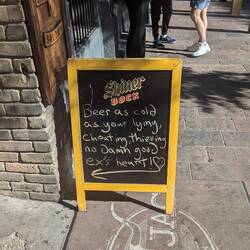 Shiner
BOCK
Beer as cold
as your lying,
cheating, thieving
no Damn good
ex's heart!
JA